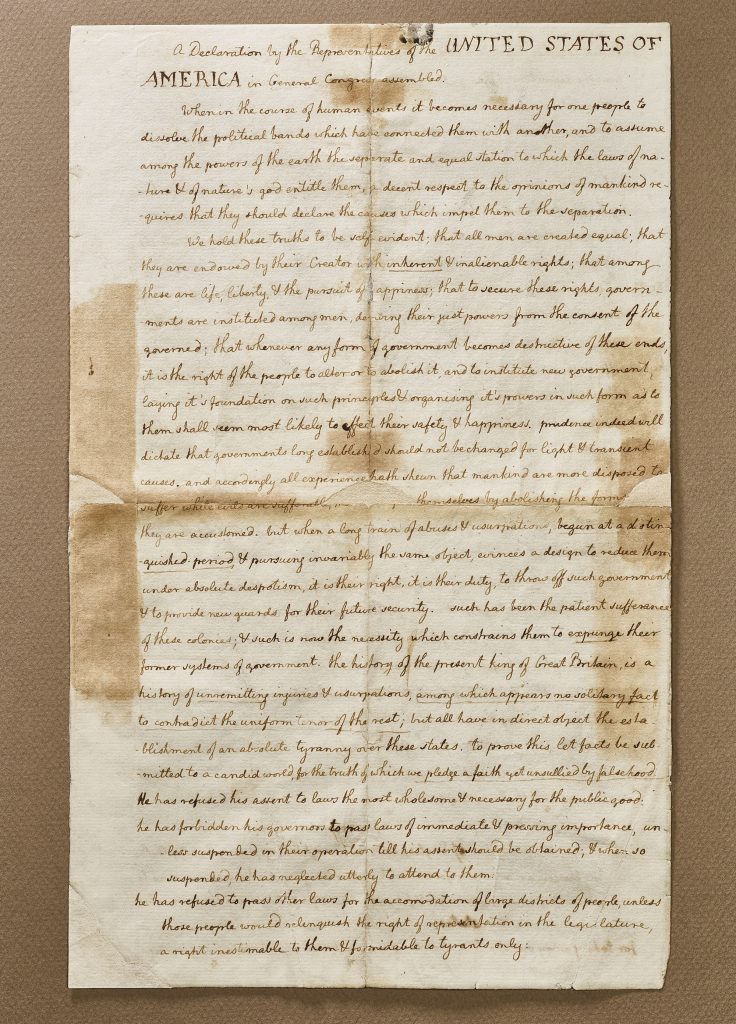 A Declaration by the Representatives of the UNITED STATES OF
AMERICA in General Congress assembled.
When in the course of human events it becomes necessary for one people to
dissolve the political bands which have connected them with another, and to assume
among the powers of the earth the separate and equal station to which the laws of na-
-ture & of nature's god entitle them, a decent respect to the opinions of mankind re-
-quires that they should declare the causes which impel them to the separation.
We hold these truths to be self evident; that all men are created equal; that
they are endowed by their Creator with inherent & inalienable rights; that among
these are life, liberty, & the pursuit of happiness; that to secure these rights, govern-
-ments are instituted among men, deriving their just powers from the consent of the
governed; that whenever any form of government becomes destructive of these ends,
it is the right of the people to alter or to abolish it, and to institute new government,
laying it's foundation on such principles & organising it's powers in such form as to
them shall seem most likely to effect their safety & happiness. prudence indeed will
dictate that governments long established should not be changed for light & transient
causes. and accordingly all experience hath shewn that mankind are more disposed to
suffer while evils are sufferable, themselves by abolishing the forms
they are accustomed. but when a long train of abuses & usurpations, begun at a distin-
-guished period, & pursuing invariably the same object, evinces a design to reduce them
under absolute despotism, it is their right, it is their duty, to throw off such government
& to provide new guards for their future security. such has been the patient sufferance
of these colonies; & such is now the necessity which constrains them to expunge their
former systems of government. the history of the present king of Great Britain, is a
history of unremitting injuries & usurpations, among which appears no solitary fact
to contradict the uniform tenor of the rest; but all have in direct object the esta
-blishment of an absolute tyranny over these states. to prove this let facts be sub-
-mitted to a candid world, for the truth of which we pledge a faith yet unsullied by falsehood
He has refused his assent to laws the most wholesome & necessary for the public good:
he has forbidden his governors to pass laws of immediate & pressing importance, un-
-less suspended in their operation till his assent should be obtained, & when so
suspended, he has neglected utterly to attend to them.
he has refused to pass other laws for the accomodation of large districts of people, unless
those people would relinquish the right of representation in the legislature,
a right inestimable to them & formidable to tyrants only: